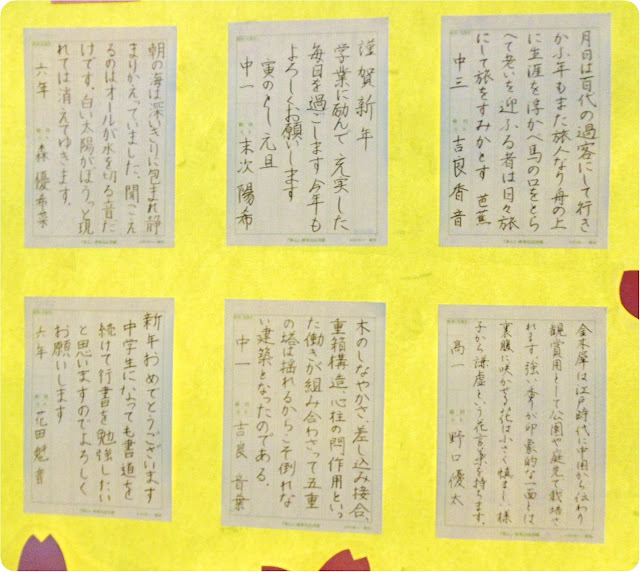 月日は百代の過客にして行き
かふ年もまた旅人なり舟の上
に生涯を浮かべ馬の口をとら
へて老いを迎ふる者は日々旅
にして旅をすみかとす 芭蕉
中三 吉良香音
謹賀新年
学業に励んで充実した
毎日を過ごします今年も
よろしくお願いします
寅のとし 元旦
中一 末次陽希
朝の海は深いきりに包まれ静
まりかえっていました。聞こえ
るのはオールが水を切る音だ
けです。白い太陽がぼうっと現
れては消えてゆきます。
六年 森優希菜
金木犀は江戸時代に中国から伝わり
観賞用として公園や庭先で栽培さ
れます。強い香りが印象的な一面とは
裏腹に咲かせる花は小さく慎ましい様
子から謙虚という花言葉を持ちます。
高一 野口優太
木のしなやかさ、差し込み接合、
重箱構造、心柱の閂作用といっ
た働きが組み合わさって五重
の塔は揺れるからこそ倒れな
い建築となったのである。
中一 吉良音葉
新年おめでとうございます
中学生になっても書道を
続けて行書を勉強したい
と思いますのでよろしく
お願いします
六年 花田魁音